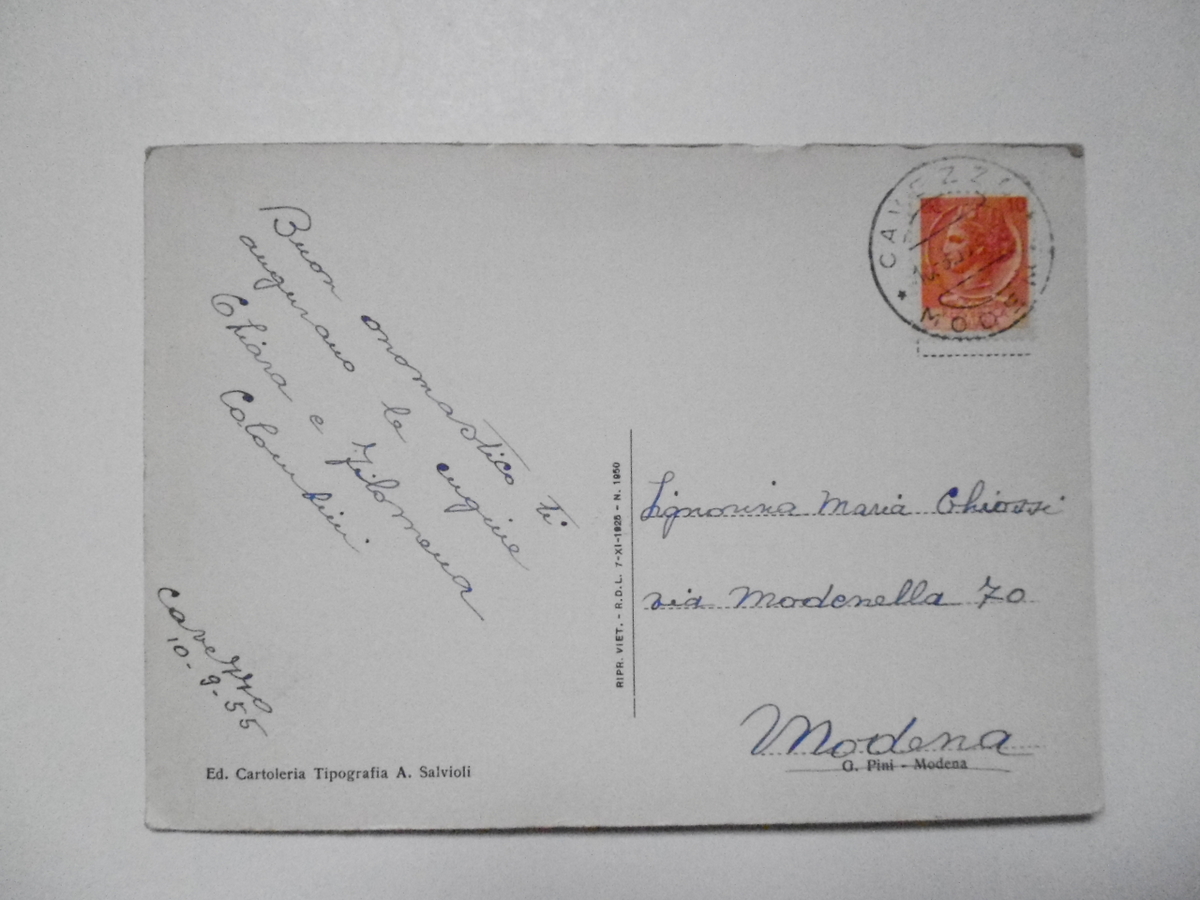 Buon onomastico ti
augurano le cugine
Chiara e Filomena
Colombini
Cavezzo
10-9-55
Ed. Cartoleria Tipografia A. Salvioli
RIPR. VIET. - R.D.L. 7-XI-1925 - N. 1950
CAVEZZO
MODENA
10
Signorina Maria Chiossi
via Modenella 70
Modena
G. Pini - Modena